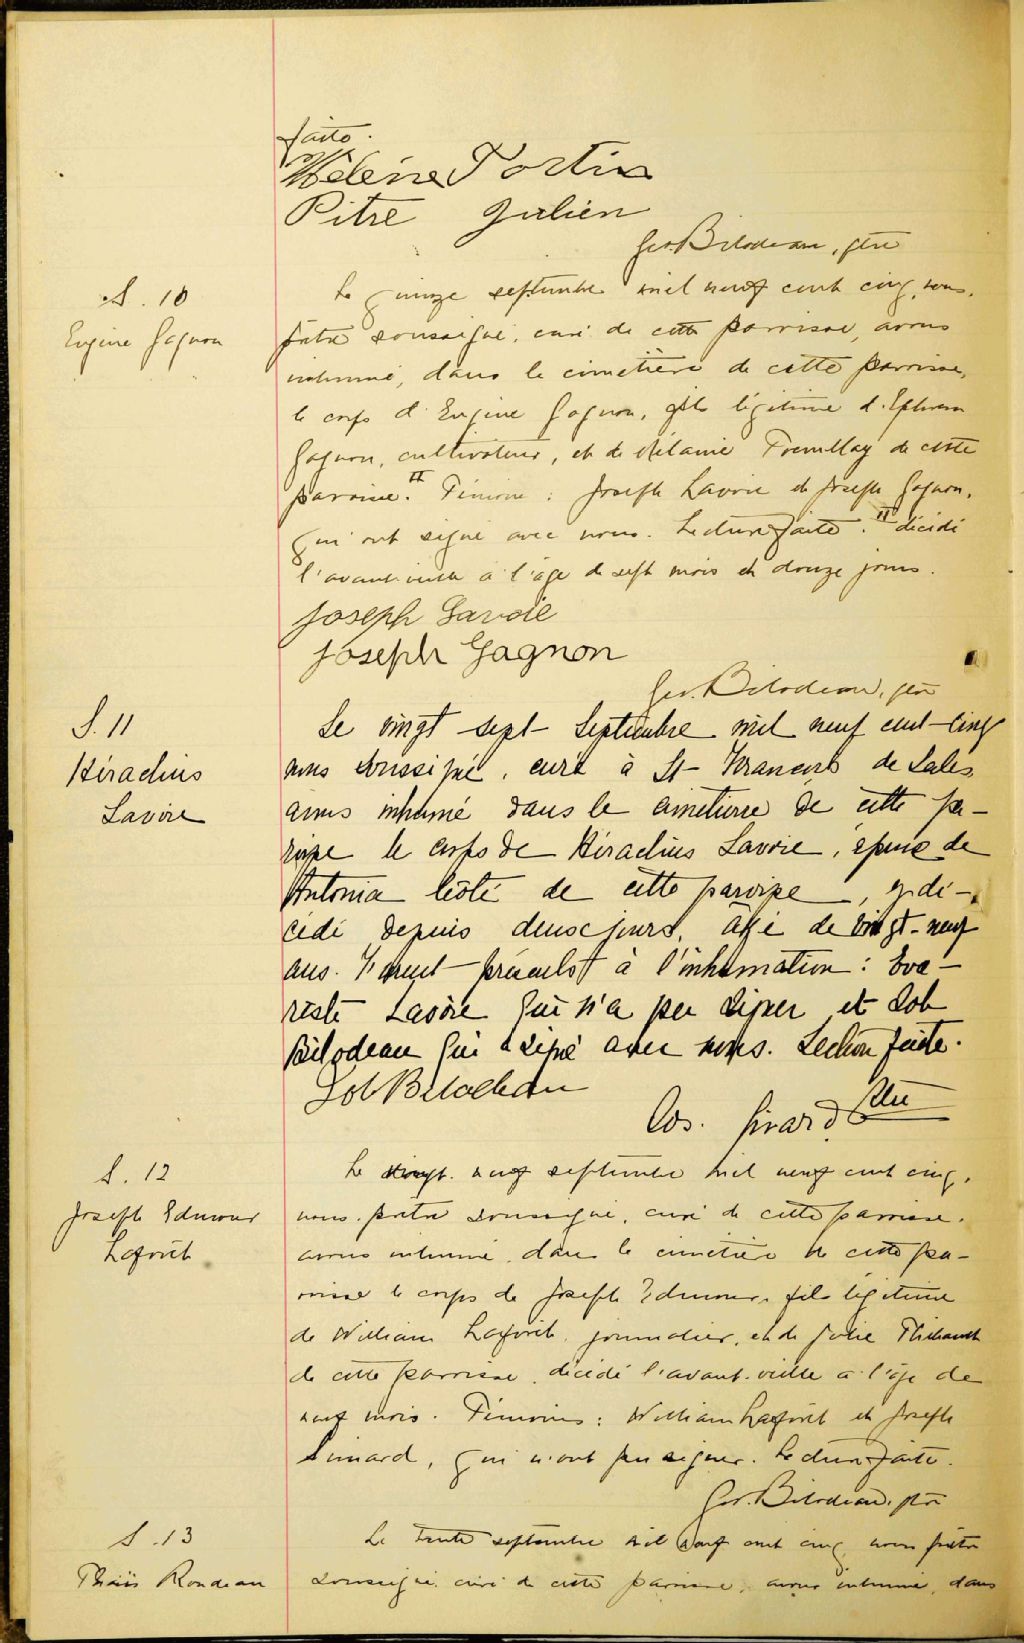 faite.
Hélène Fortin
Pitre Julien
Geo. Bilodeau, ptre
S. 10
Eugène Gagnon
Le quinze septembre mil neuf cent cinq, nous,
prêtre soussigné, curé de cette paroisse, avons
inhumé, dans le cimetière de cette paroisse,
le corps d'Eugène Gagnon, fils légitime d'Ephrem
Gagnon, cultivateur, et de Mélanie Tremblay de cette
paroisse. Témoins : Joseph Lavoie et Joseph Gagnon,
qui ont signé avec nous. Lecture faite. décédé
l'avant-veille à l'âge de sept mois et douze jours.
Joseph Lavoie
Joseph Gagnon
Geo. Bilodeau, ptre
S. 11
Héraclius
Lavoie
Le vingt sept Septembre mil neuf cent-cinq
nous soussigné, curé à St-François de Sales,
avons inhumé dans le cimetière de cette pa-
roisse le corps de Héraclius Lavoie, époux de
Antonia Côté de cette paroisse, y dé-
cédé depuis deux jours, âgé de vingt-neuf
ans. Furent présents à l'inhumation : Eva-
riste Lavoie qui n'a pu signer et Job
Bilodeau qui a signé avec nous. Lection faite.
Job Bilodeau
Os. Girard Ptre
S. 12
Joseph Edmour
Laforêt
Le vingt-neuf septembre mil neuf cent cinq,
nous, prêtre soussigné, curé de cette paroisse,
avons inhumé, dans le cimetière de cette pa-
roisse le corps de Joseph Edmour, fils légitime
de William Laforêt, journalier, et de Julie Thibault
de cette paroisse, décédé l'avant-veille à l'âge de
neuf mois. Témoins : William Laforêt et Joseph
Simard, qui n'ont pu signer. Lecture faite.
Geo. Bilodeau, ptre
S. 13
Thaïs Rondeau
Le trente septembre mil neuf cent cinq, nous prêtre
soussigné, curé de cette paroisse, avons inhumé, dans